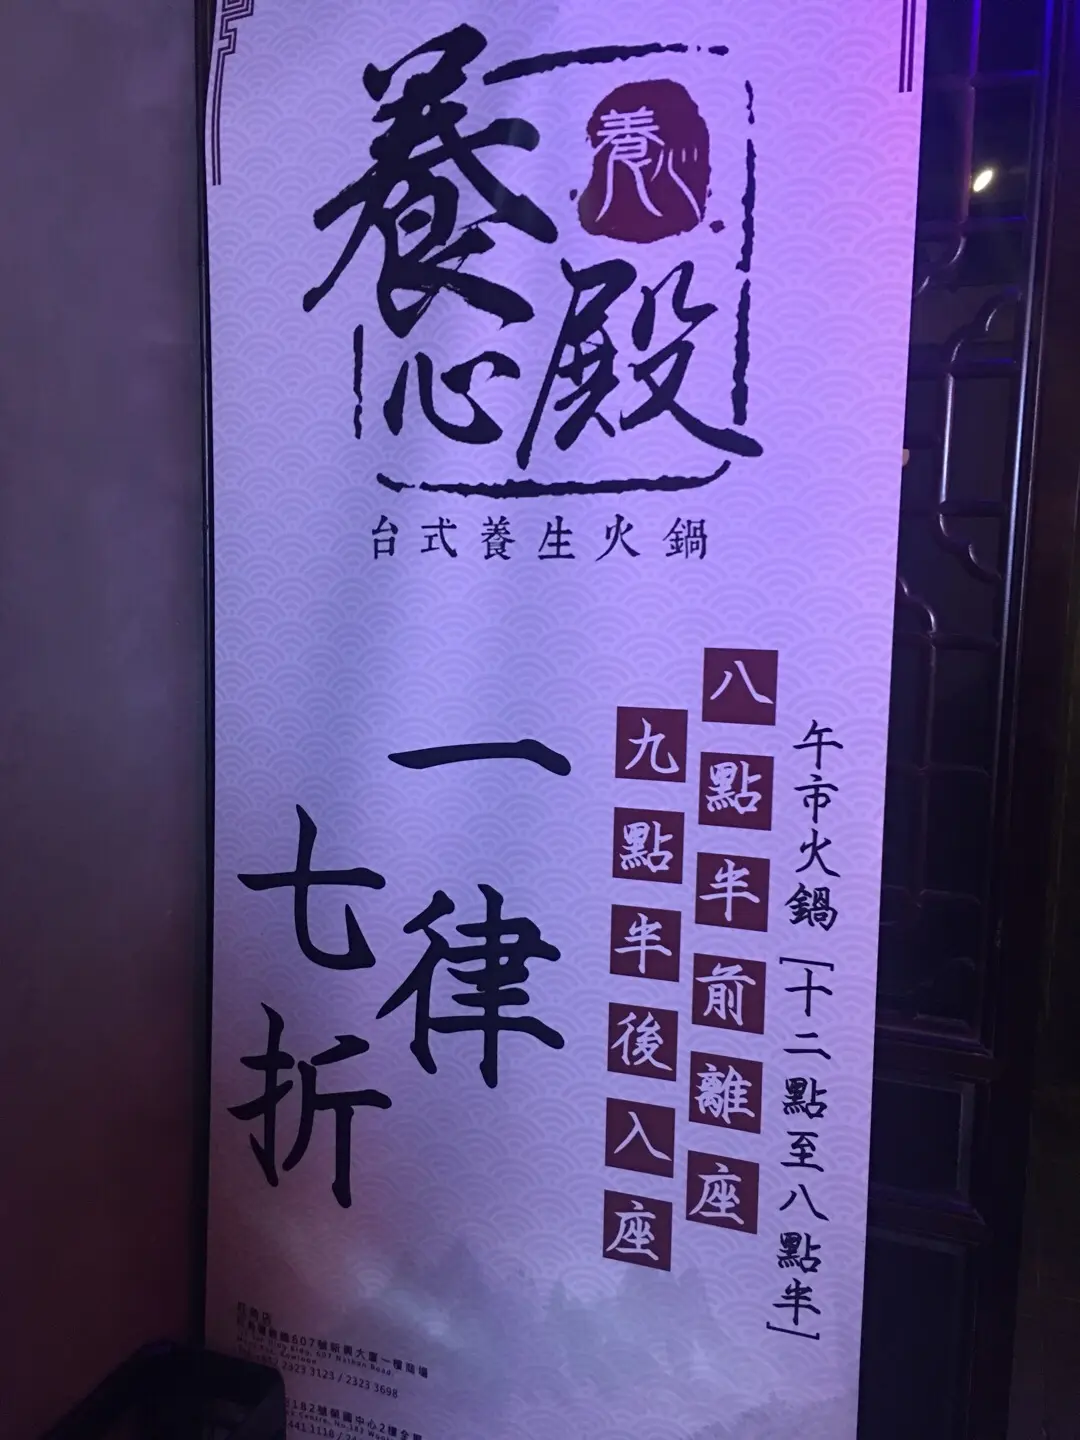 養心殿
養心
台式養生火鍋
午市火鍋[十二點至八點半]
八點半前離座
九點半後入座
一律
七折
旺角店
607號新興大廈一樓商場
607 Nathan Road,
2323 3123 / 2323 3698
182號榮國中心2樓全層